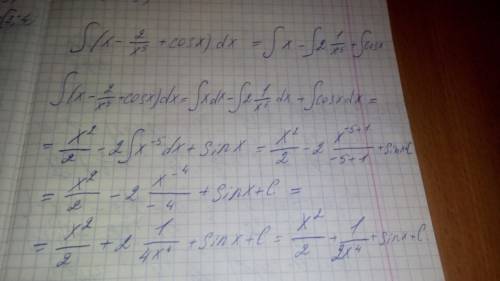 ∫(x - 2/x⁵ + cosx)dx = ∫x - ∫2 1/x⁵ + ∫cosx
∫(x - 2/x⁵ + cosx)dx = ∫xdx - ∫2 1/x⁵ dx + ∫cosxdx =
= x²/2 - 2∫x⁻⁵dx + sinx = x²/2 - 2 x⁻⁵⁺¹/-5+1 + sinx+C
= x²/2 - 2 x⁻⁴/-4 + sinx + C =
= x²/2 + 2 1/4x⁴ + sinx + C = x²/2 + 1/2x⁴ + sinx + C